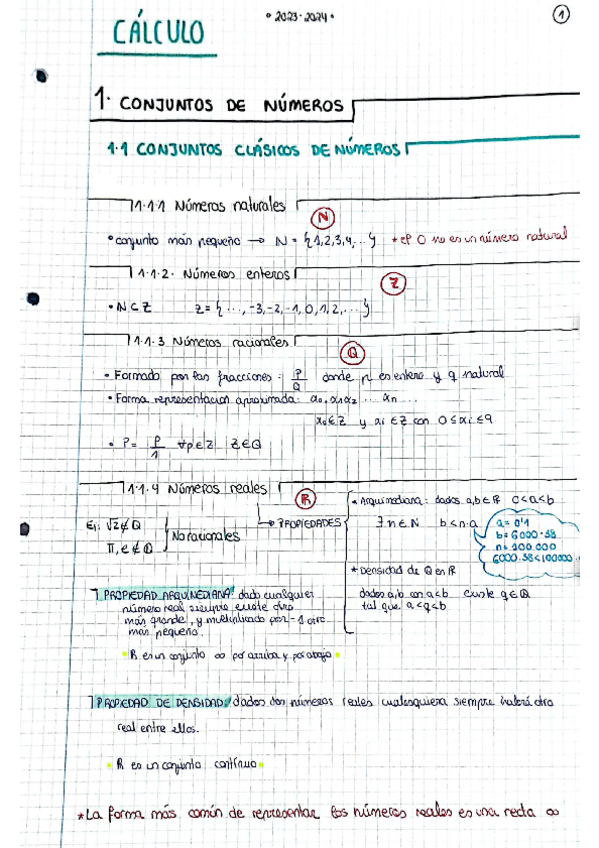 • 2023-2024 •
1
CÁLCULO
1. CONJUNTOS DE NÚMEROS
1.1 CONJUNTOS CLÁSICOS DE NÚMEROS
1.1.1 Números naturales
N
• conjunto más pequeño → N = {1,2,3,4,...} * el 0 no es un número natural
1.1.2. Números enteros
Z
• N ⊂ Z Z = {..., -3, -2, -1, 0, 1, 2, ...}
1.1.3 Números racionales
Q
• Formado por las fracciones: P/Q donde p es entero y q natural
• Forma representación aproximada: α0, α1 α2 ... αn ...
α0 ∈ Z y αi ∈ Z con 0 ≤ αi ≤ 9
• P = P/1 ∀p∈Z Z∈Q
1.1.4 Números reales
R
→ PROPIEDADES
* Arquimediana: dados a,b ∈ R 0<a<b
∃ n ∈ N b < n·a
a = 0'1
b = 6000.58
n = 100.000
6000.58 < 100000
* Densidad de Q en R
dados a,b con a<b existe q ∈ Q
tal que a<q<b
Ej: √2 ∉ Q
π, e ∉ Q
No racionales
PROPIEDAD ARQUIMEDIANA: dado cualquier
número real siempre existe otro
más grande, y multiplicado por -1 otro
más pequeño.
• R es un conjunto ∞ por arriba y por abajo •
PROPIEDAD DE DENSIDAD: dados dos números reales cualesquiera siempre habrá otro
real entre ellos.
• R es un conjunto continuo •
* La forma más común de representar los números reales es una recta ∞